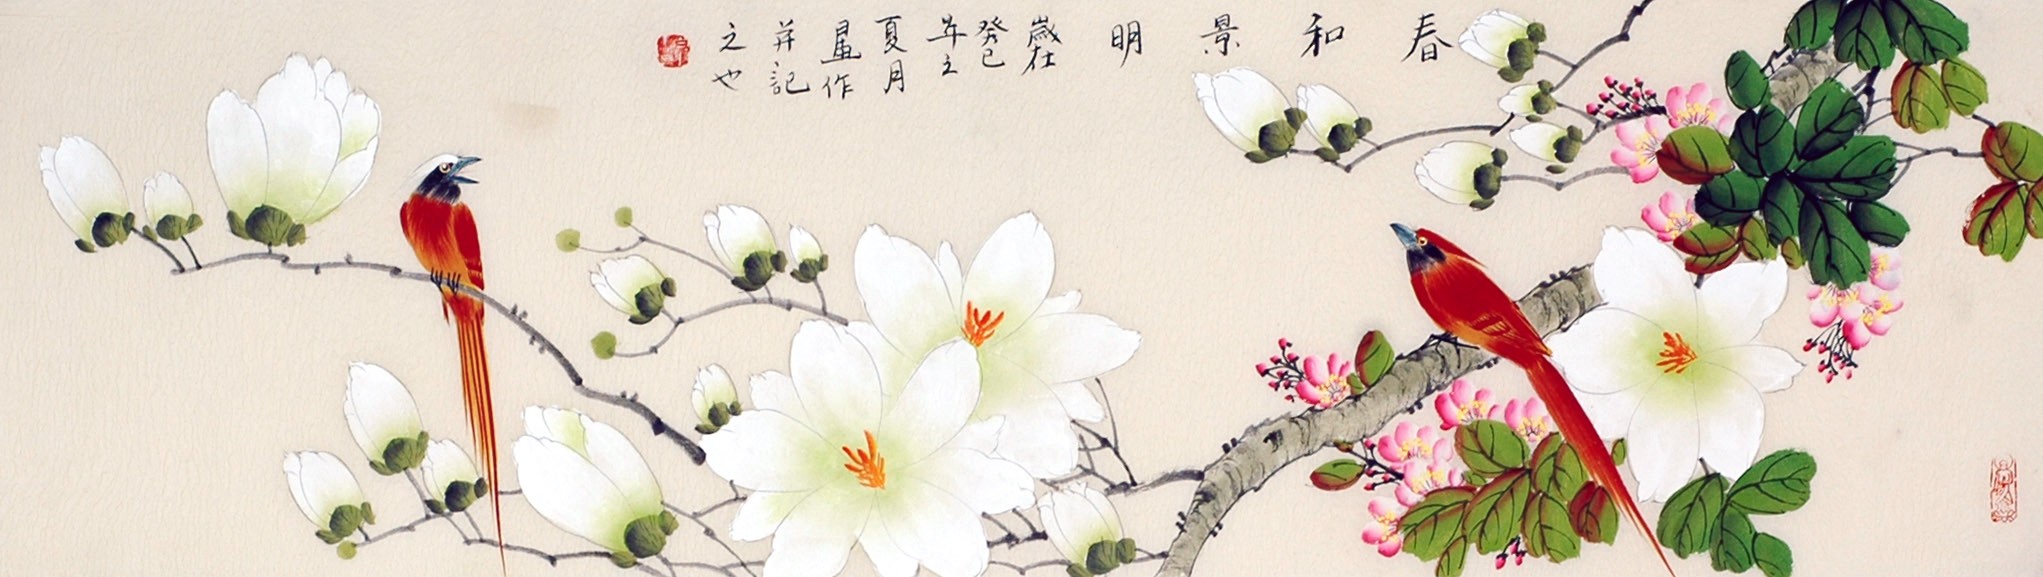 春和景明
歲在
癸巳
年之
夏月
畫作
并記
之也